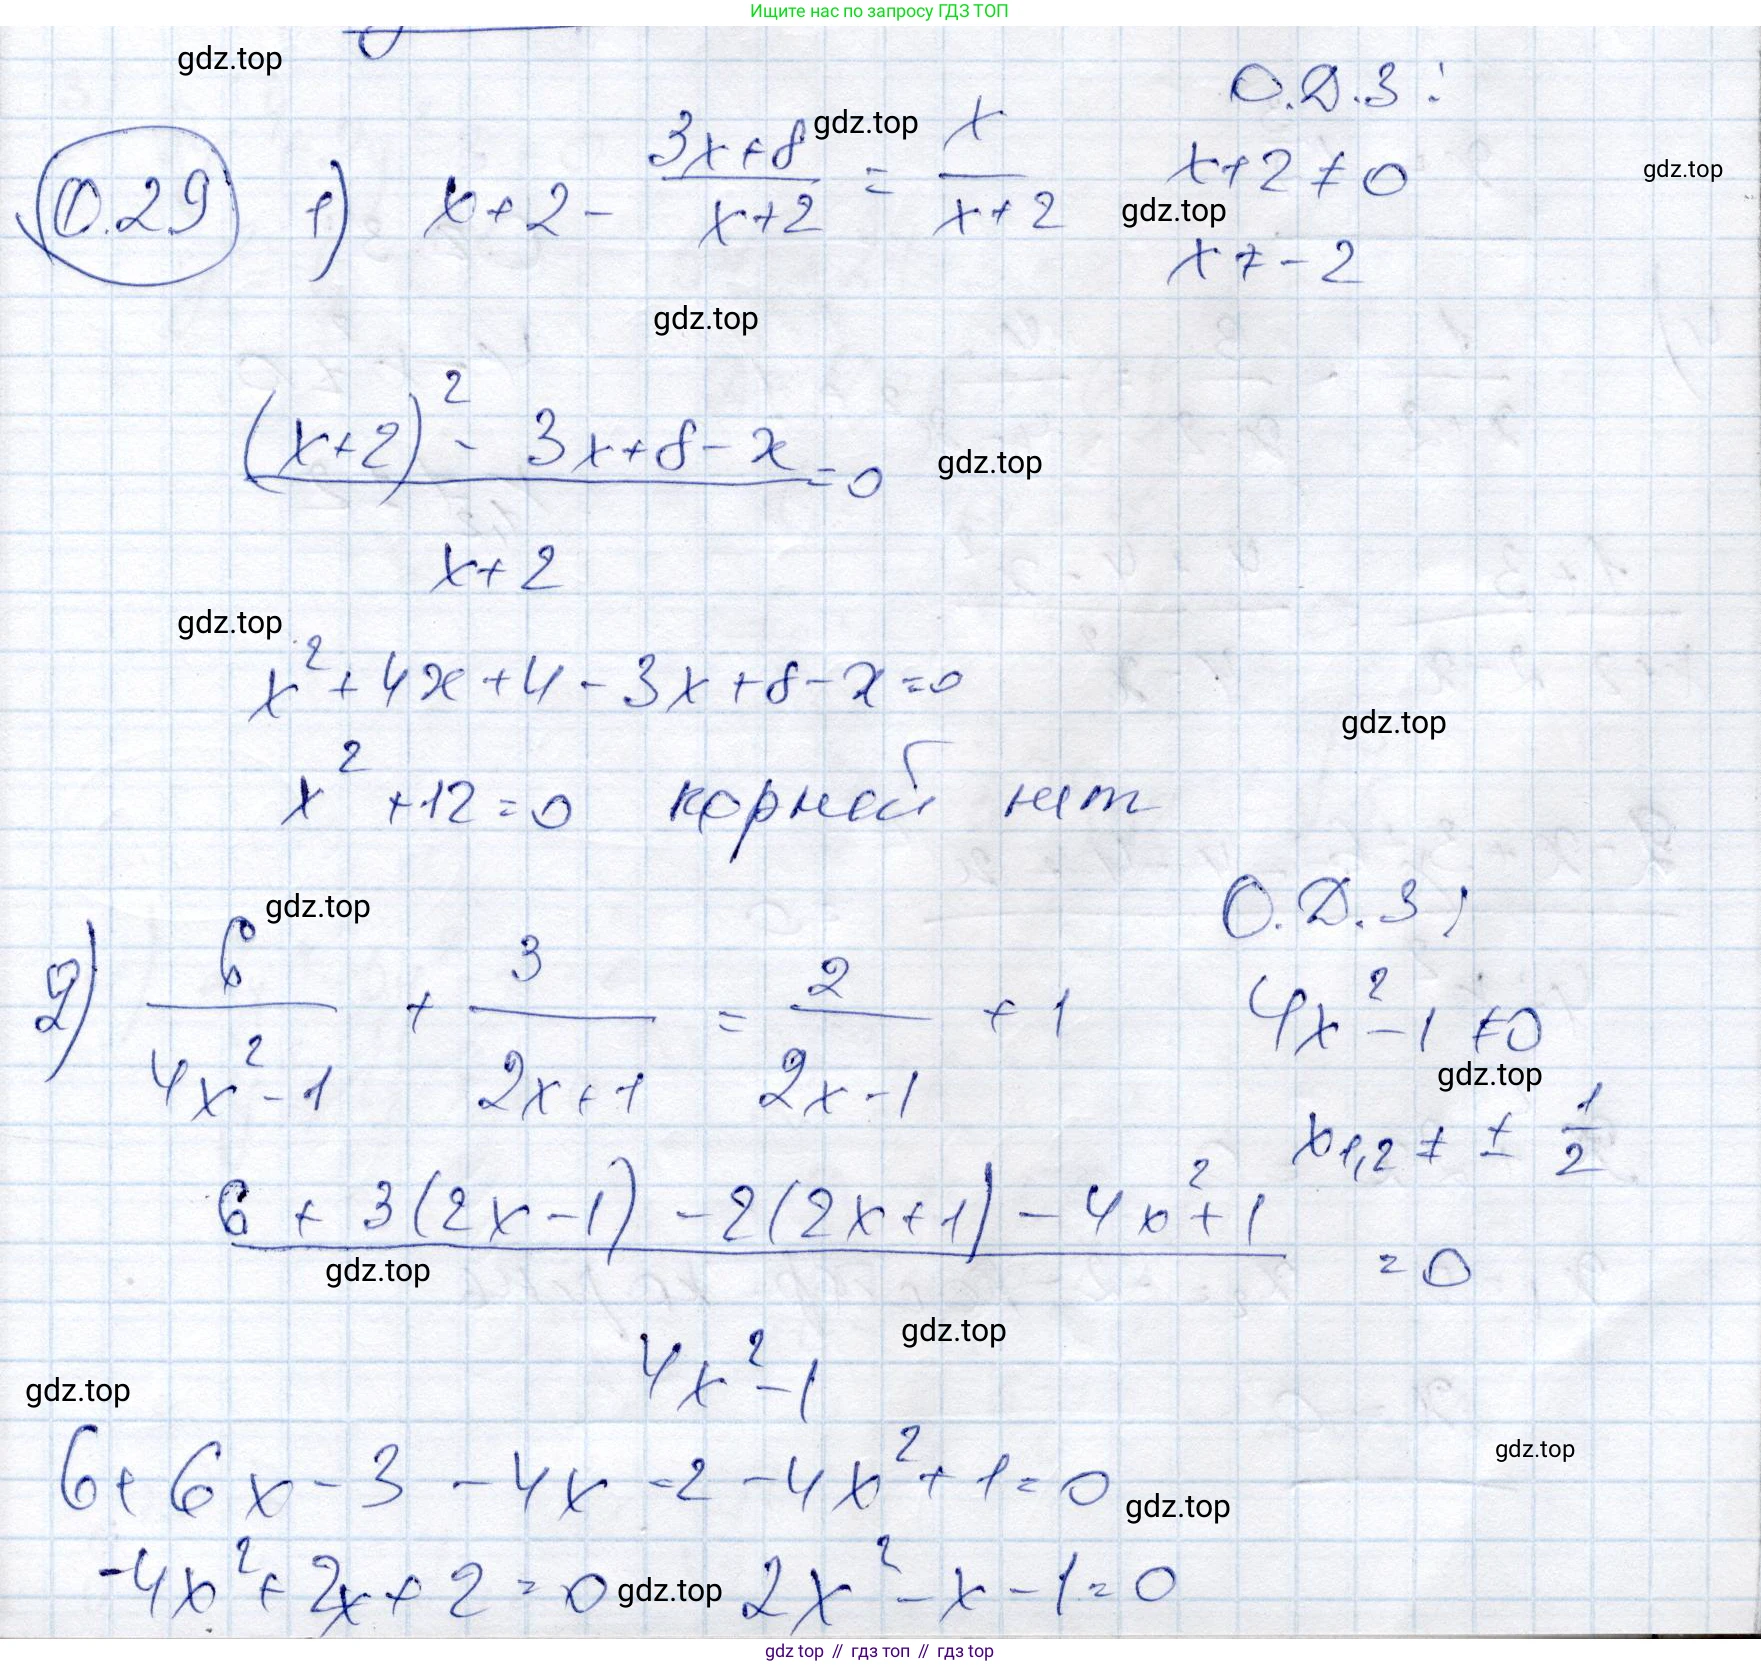 Ищите нас по запросу ГДЗ ТОП
gdz.top
О.Д.З:
0.29 1) x+2 - (3x+8)/(x+2) = x/(x+2)
gdz.top
x+2 ≠ 0
gdz.top
gdz.top
x ≠ -2
gdz.top
((x+2)² - 3x+8-x)/(x+2) = 0
gdz.top
gdz.top
x² + 4x + 4 - 3x + 8 - x = 0
gdz.top
x² + 12 = 0 корней нет
gdz.top
О.Д.З;
2) 6/(4x²-1) + 3/(2x+1) = 2/(2x-1) + 1
4x² - 1 ≠ 0
gdz.top
x₁,₂ ≠ ± 1/2
(6 + 3(2x-1) - 2(2x+1) - 4x²+1)/(4x²-1) = 0
gdz.top
gdz.top
gdz.top
6+6x-3-4x-2-4x²+1=0
gdz.top
gdz.top
-4x²+2x+2=0 gdz.top 2x²-x-1=0
gdz top // гдз топ // гдз top